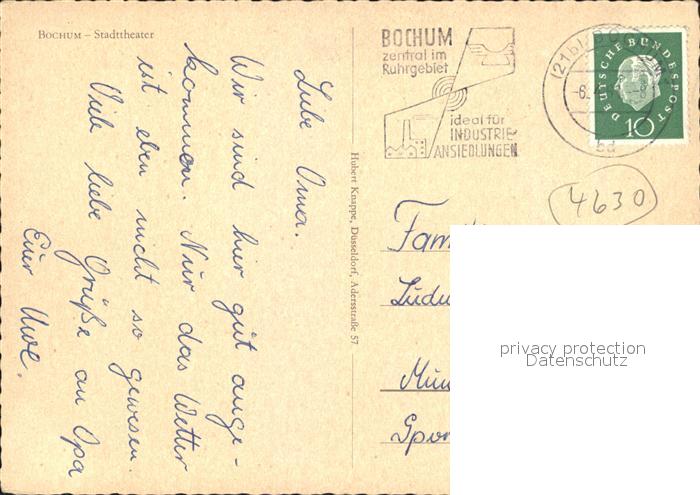 BOCHUM – Stadttheater
Liebe Oma.
Wir sind hier gut ange-
kommen. Nur das Wetter
ist eben nicht so gewesen.
Viele liebe Grüße an Opa
Euer Uwe.
Hubert Knappe, Düsseldorf, Adersstraße 57
BOCHUM
zentral im
Ruhrgebiet
ideal für
INDUSTRIE-
ANSIEDLUNGEN
(21b)
-6.
bd
DEUTSCHE BUNDESPOST
10
4630
Fam
Ludw
Mün
Spor
privacy protection
Datenschutz